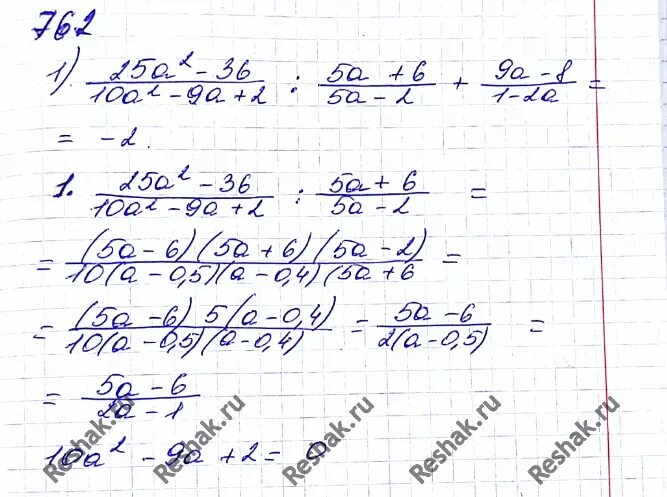 762
1). (25a² - 36)/(10a² - 9a + 2) : (5a + 6)/(5a - 2) + (9a - 8)/(1 - 2a) =
= -2.
1. (25a² - 36)/(10a² - 9a + 2) : (5a + 6)/(5a - 2) =
= (5a - 6)(5a + 6)(5a - 2)/10(a - 0,5)(a - 0,4)(5a + 6 =
= (5a - 6) 5(a - 0,4)/10(a - 0,5)(a - 0,4) = (5a - 6)/2(a - 0,5) =
= (5a - 6)/(2a - 1)
10a² - 9a + 2 = 0
Reshak.ru
Reshak.ru
Reshak.ru
Reshak.ru
Reshak.ru